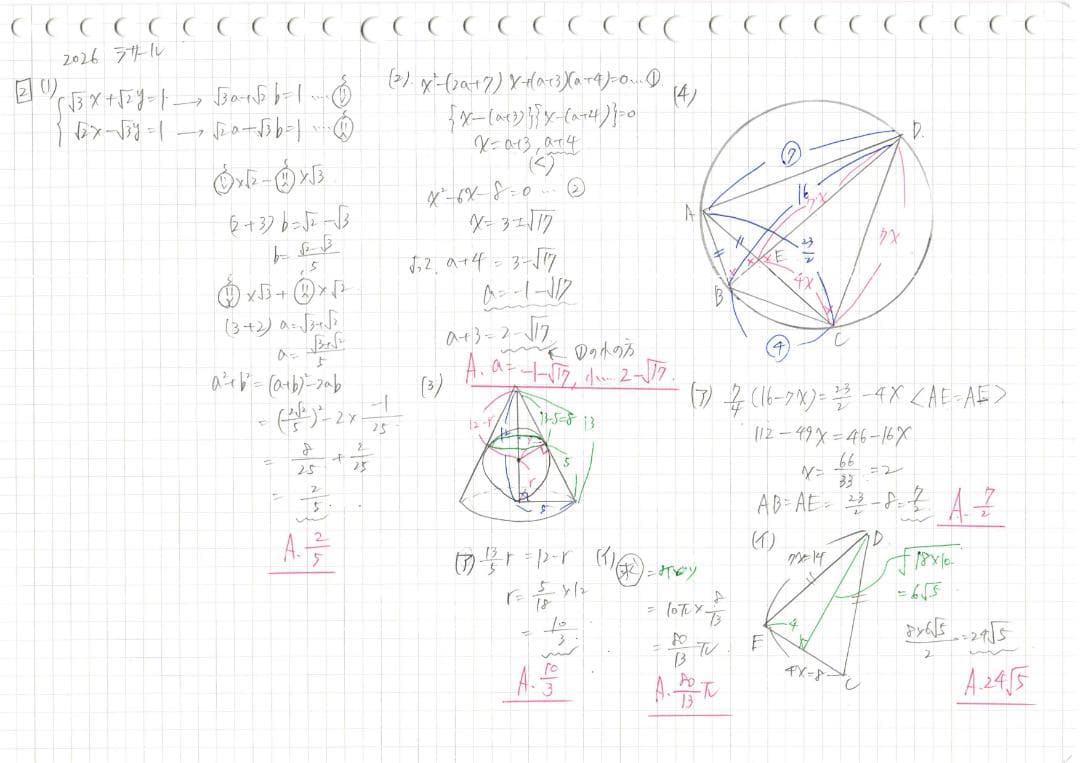 2026 ラサール
2 (1)
√3x+√2y=1 → √3a+√2b=1 …
√2x-√3y=1 → √2a-√3b=1 …
×√2 - ×√3
(2+3)b=√2-√3
b=(√2-√3)/5
×√3 + ×√2
(3+2)a=√3+√2
a=(√3+√2)/5
a²+b²=(a+b)²-2ab
=(2√2/5)²-2×-1/25
=8/25+2/25
=2/5
A. 2/5
(2). x²-(2a+7)x+(a+3)(a+4)=0…①
{x-(a+3)}{x-(a+4)}=0
x=a+3, a+4
(<)
x²-6x-8=0 … ②
x=3±√17
よって. a+4=3-√17
a=-1-√17
a+3=2-√17
①の小の方
A. a=-1-√17, 小…2-√17.
(3)
12-r
13-5=8
13
12
5
r
5
(ア) 13/5 r=12-r
r=5/18×12
=10/3
A. 10/3
(イ) 求
=10π×8/13
=80/13 π
A. 80/13 π
(4)
D
⑦
16
7x
A
23/2
7x
E
4x
B
C
④
(ア) 7/4(16-7x)=23/2-4x <AE=AE>
112-49x=46-16x
x=66/33=2
AB=AE=23/2-8=7/2
A. 7/2
(イ)
D
7x=14
√18×10
=6√5
4
E
4x=8
C
8×6√5/2=24√5
A. 24√5